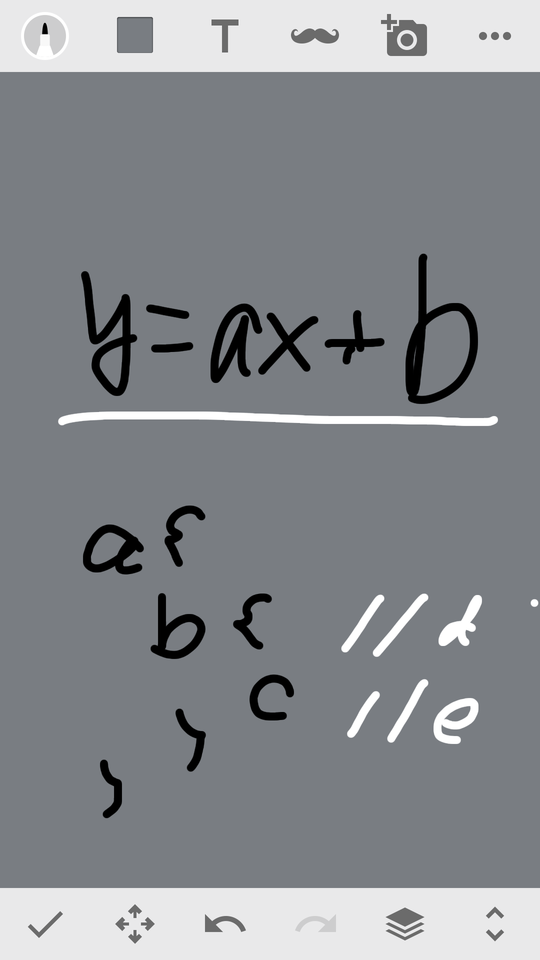 T
y=ax+b
a{
b{ //d
c //e
}
}